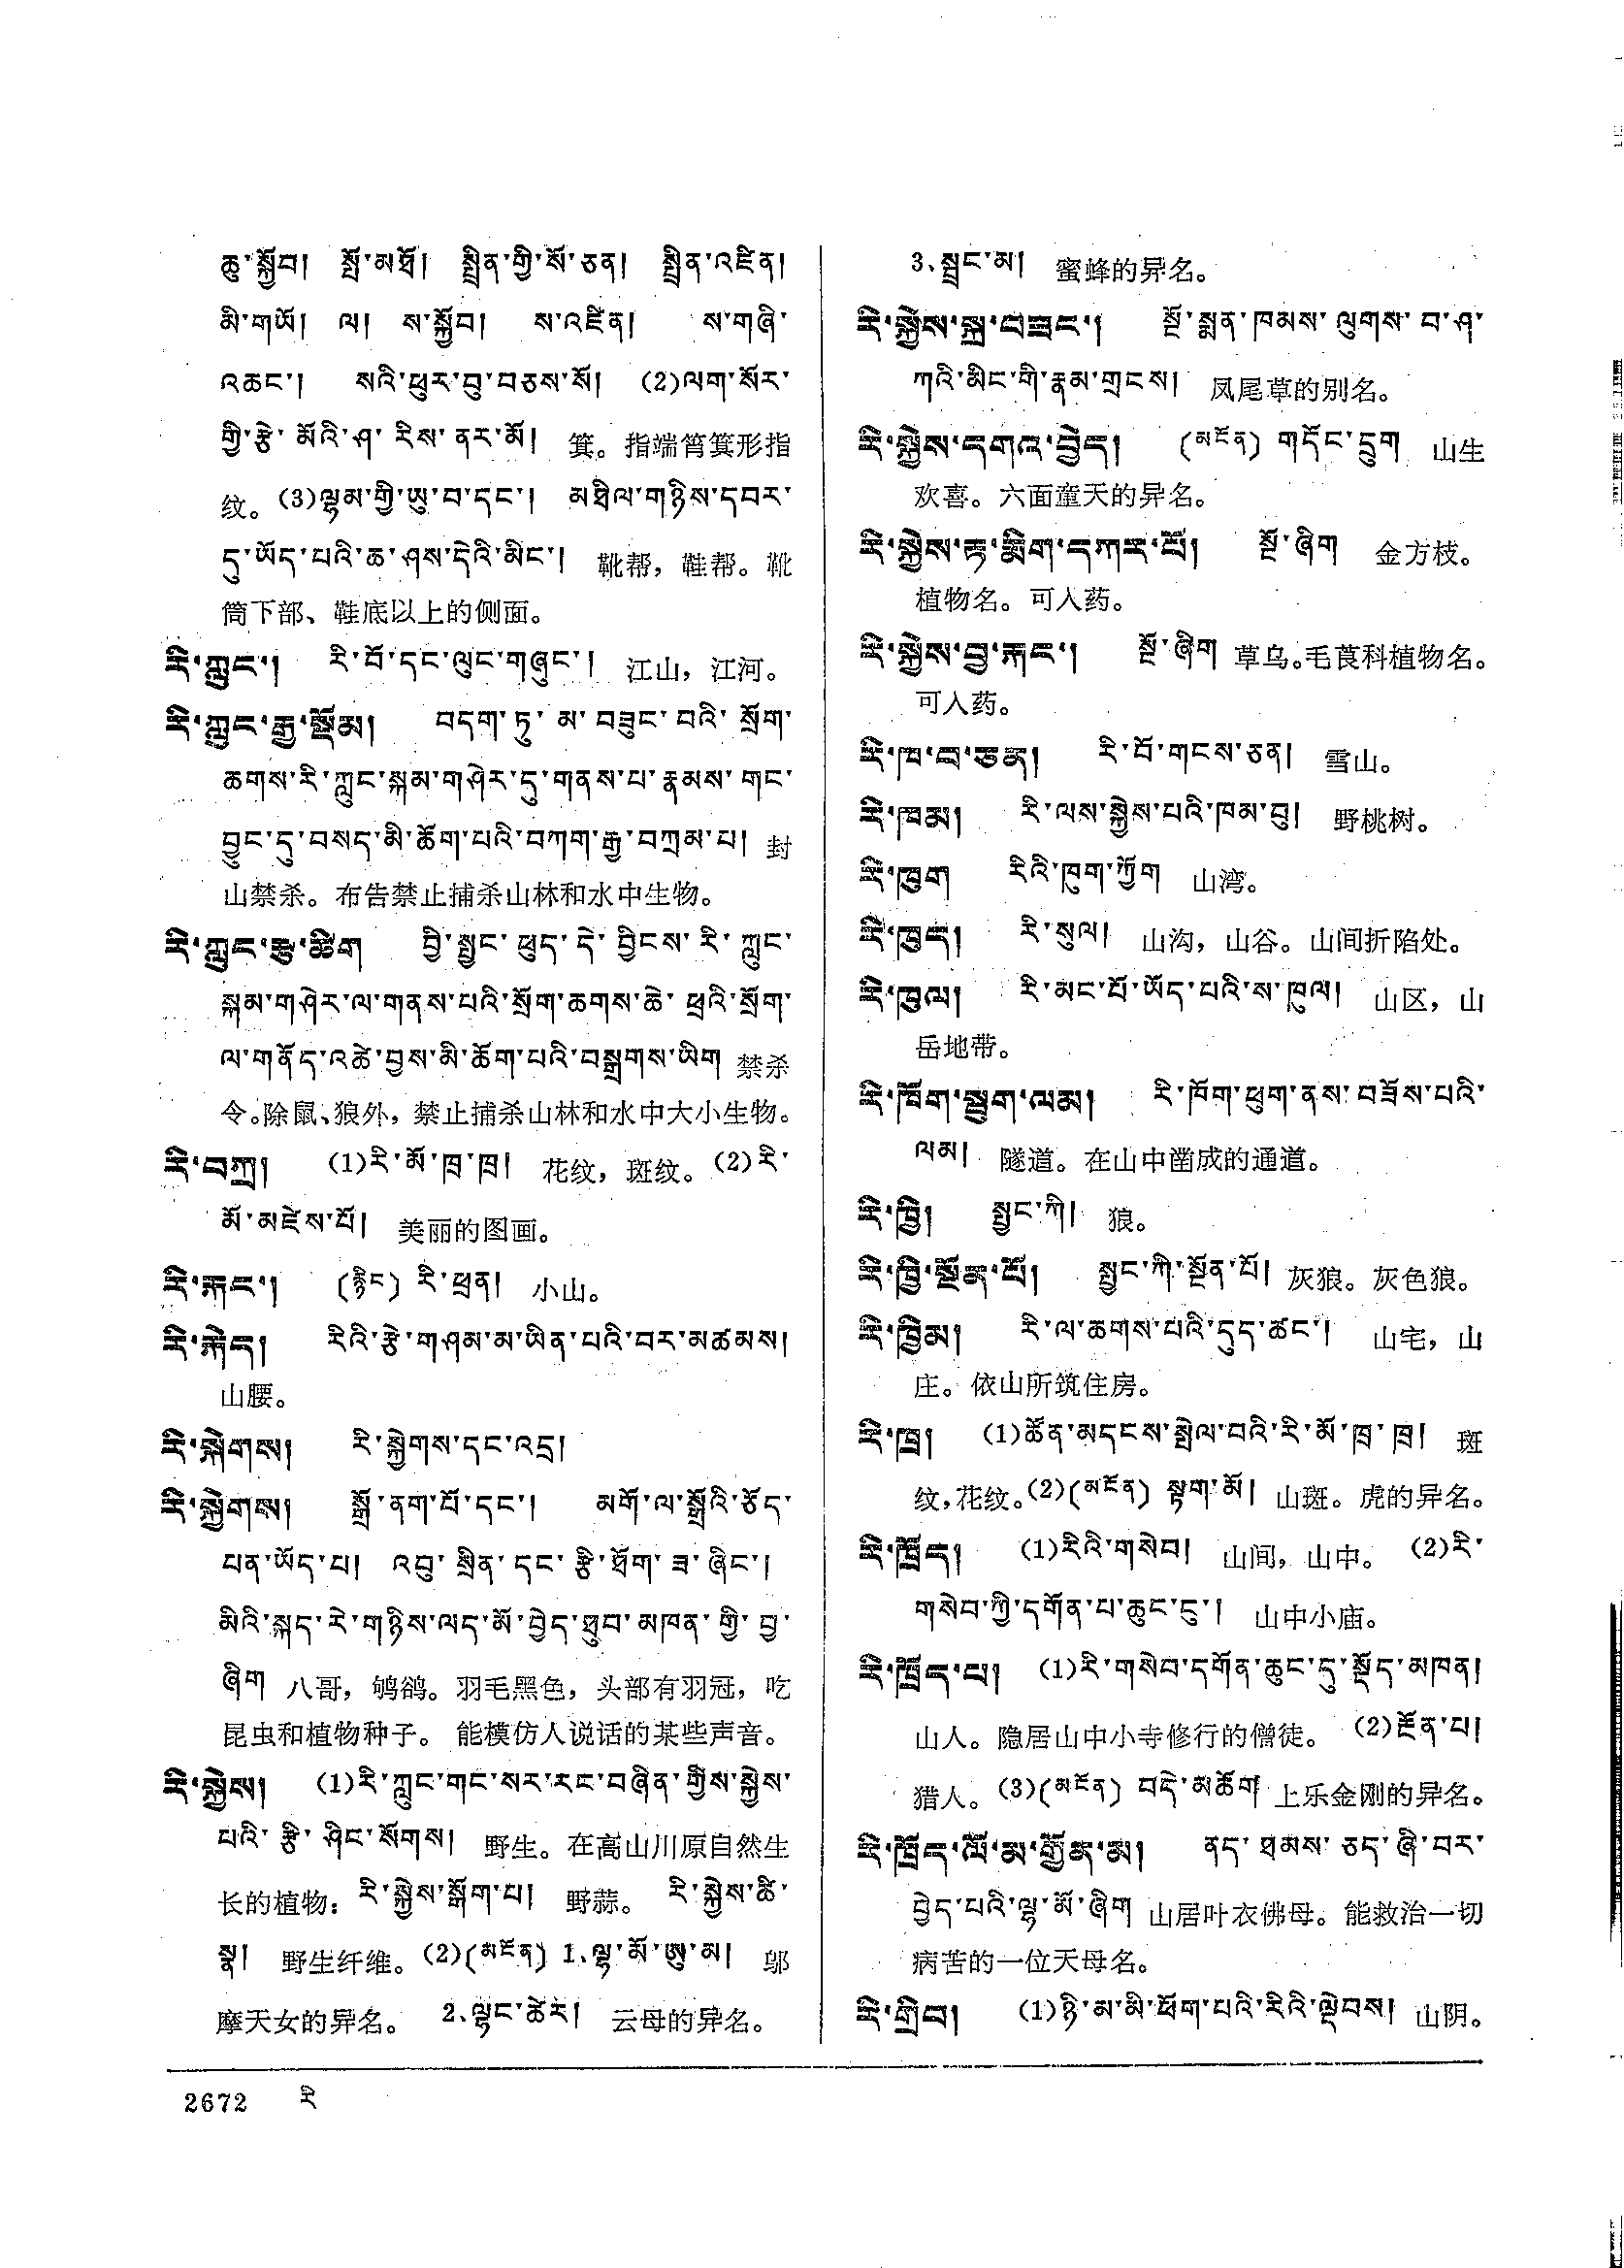 ཆུ་སྐྱོབ། སྤོ་མཐོ། སྤྲིན་གྱི་སོ་ཅན། སྤྲིན་འཛིན།
མི་གཡོ། ལ། ས་སྐྱོབ། ས་འཛིན། ས་གཞི་
འཆང་། སའི་ཕུར་བུ་བཅས་སོ། (2)ལག་སོར་
གྱི་རྩེ་མོའི་ཤ་རིས་ནར་མོ། 箕。指端筲箕形指
纹。(3)ལྷམ་གྱི་ཡུ་བ་དང་། མཐིལ་གཉིས་དབར་
དུ་ཡོད་པའི་ཆ་ཤས་དེའི་མིང་། 靴帮，鞋帮。靴
筒下部、鞋底以上的侧面。
རི་ཀླུང་། རི་བོ་དང་ལུང་གཞུང་། 江山，江河。
རི་ཀླུང་རྒྱ་སྡོམ། བདག་ཏུ་མ་བཟུང་བའི་སྲོག་
ཆགས་རི་ཀླུང་སྐམ་གཤེར་དུ་གནས་པ་རྣམས་གང་
བྱུང་དུ་བསད་མི་ཆོག་པའི་བཀག་རྒྱ་བཀྲམ་པ། 封
山禁杀。布告禁止捕杀山林和水中生物。
རི་ཀླུང་རྩྭ་ཚིག བྱི་སྤྱང་ཕུད་དེ་བྱིངས་རི་ཀླུང་
སྐམ་གཤེར་ལ་གནས་པའི་སྲོག་ཆགས་ཆེ་ཕྲའི་སྲོག་
ལ་གནོད་འཚེ་བྱས་མི་ཆོག་པའི་བསྒྲགས་ཡིག 禁杀
令。除鼠、狼外，禁止捕杀山林和水中大小生物。
རི་བཀྲ། (1)རི་མོ་ཁྲ་ཁྲ། 花纹，斑纹。(2)རི་
མོ་མཛེས་པོ། 美丽的图画。
རི་རྐང་། (རྙིང) རི་ཕྲན། 小山。
རི་རྐེད། རིའི་རྩེ་གཤམ་མ་ཡིན་པའི་བར་མཚམས།
山腰。
རི་སྐེགས། རི་སྐྱེགས་དང་འདྲ།
རི་སྐྱེགས། སྒྲོ་ནག་པོ་དང་། མགོ་ལ་སྒྲོའི་ཅོད་
པན་ཡོད་པ། འབུ་སྲིན་དང་རྩི་ཐོག་ཟ་ཞིང་།
མིའི་སྐད་རེ་གཉིས་ལད་མོ་བྱེད་ཐུབ་མཁན་གྱི་བྱ་
ཞིག 八哥，鸲鹆。羽毛黑色，头部有羽冠，吃
昆虫和植物种子。能模仿人说话的某些声音。
རི་སྐྱེས། (1)རི་ཀླུང་གང་སར་རང་བཞིན་གྱིས་སྐྱེས་
པའི་རྩི་ཤིང་སོགས། 野生。在高山川原自然生
长的植物：རི་སྐྱེས་སྒོག་པ། 野蒜。 རི་སྐྱེས་ཚི་
སྣ། 野生纤维。(2)(མངོན) 1.ལྷ་མོ་ཨུ་མ། 邬
摩天女的异名。 2.ལྷང་ཚེར། 云母的异名。
3、སྦྲང་མ། 蜜蜂的异名。
རི་སྐྱེས་སྐྲ་བཟང་། སྔོ་སྨན་ཁམས་ལུགས་བ་ཤ་
ཀའི་མིང་གི་རྣམ་གྲངས། 凤尾草的别名。
རི་སྐྱེས་དགའ་བྱེད། (མངོན) གདོང་དྲུག 山生
欢喜。六面童天的异名。
རི་སྐྱེས་ཏ་མིག་དཀར་པོ། སྔོ་ཞིག 金方枝。
植物名。可入药。
རི་སྐྱེས་བྱ་རྐང་། སྔོ་ཞིག 草乌。毛茛科植物名。
可入药。
རི་ཁ་བ་ཅན། རི་བོ་གངས་ཅན། 雪山。
རི་ཁམ། རི་ལས་སྐྱེས་པའི་ཁམ་བུ། 野桃树。
རི་ཁུག རིའི་ཁུག་ཀྱོག 山湾。
རི་ཁུད། རི་སུལ། 山沟，山谷。山间折陷处。
རི་ཁུལ། རི་མང་པོ་ཡོད་པའི་ས་ཁུལ། 山区，山
岳地带。
རི་ཁོག་སྦུག་ལམ། རི་ཁོག་ཕུག་ནས་བཟོས་པའི་
ལམ། 隧道。在山中凿成的通道。
རི་ཁྱི། སྤྱང་ཀི། 狼。
རི་ཁྱི་སྔོན་པོ། སྤྱང་ཀི་སྔོན་པོ། 灰狼。灰色狼。
རི་ཁྱིམ། རི་ལ་ཆགས་པའི་དུད་ཚང་། 山宅，山
庄。依山所筑住房。
རི་ཁྲ། (1)ཚོན་མདངས་སྤེལ་བའི་རི་མོ་ཁྲ་ཁྲ། 斑
纹，花纹。(2)(མངོན) སྟག་མོ། 山斑。虎的异名。
རི་ཁྲོད། (1)རིའི་གསེབ། 山间，山中。 (2)རི་
གསེབ་ཀྱི་དགོན་པ་ཆུང་ངུ་། 山中小庙。
རི་ཁྲོད་པ། (1)རི་གསེབ་དགོན་ཆུང་དུ་སྡོད་མཁན།
山人。隐居山中小寺修行的僧徒。 (2)རྔོན་པ།
猎人。(3)(མངོན) བདེ་མཆོག 上乐金刚的异名。
རི་ཁྲོད་ལོ་མ་གྱོན་མ། ནད་ཐམས་ཅད་ཞི་བར་
བྱེད་པའི་ལྷ་མོ་ཞིག 山居叶衣佛母。能救治一切
病苦的一位天母名。
རི་གྲིབ། (1)ཉི་མ་མི་ཕོག་པའི་རིའི་ལྡེབས། 山阴。
2672 རི